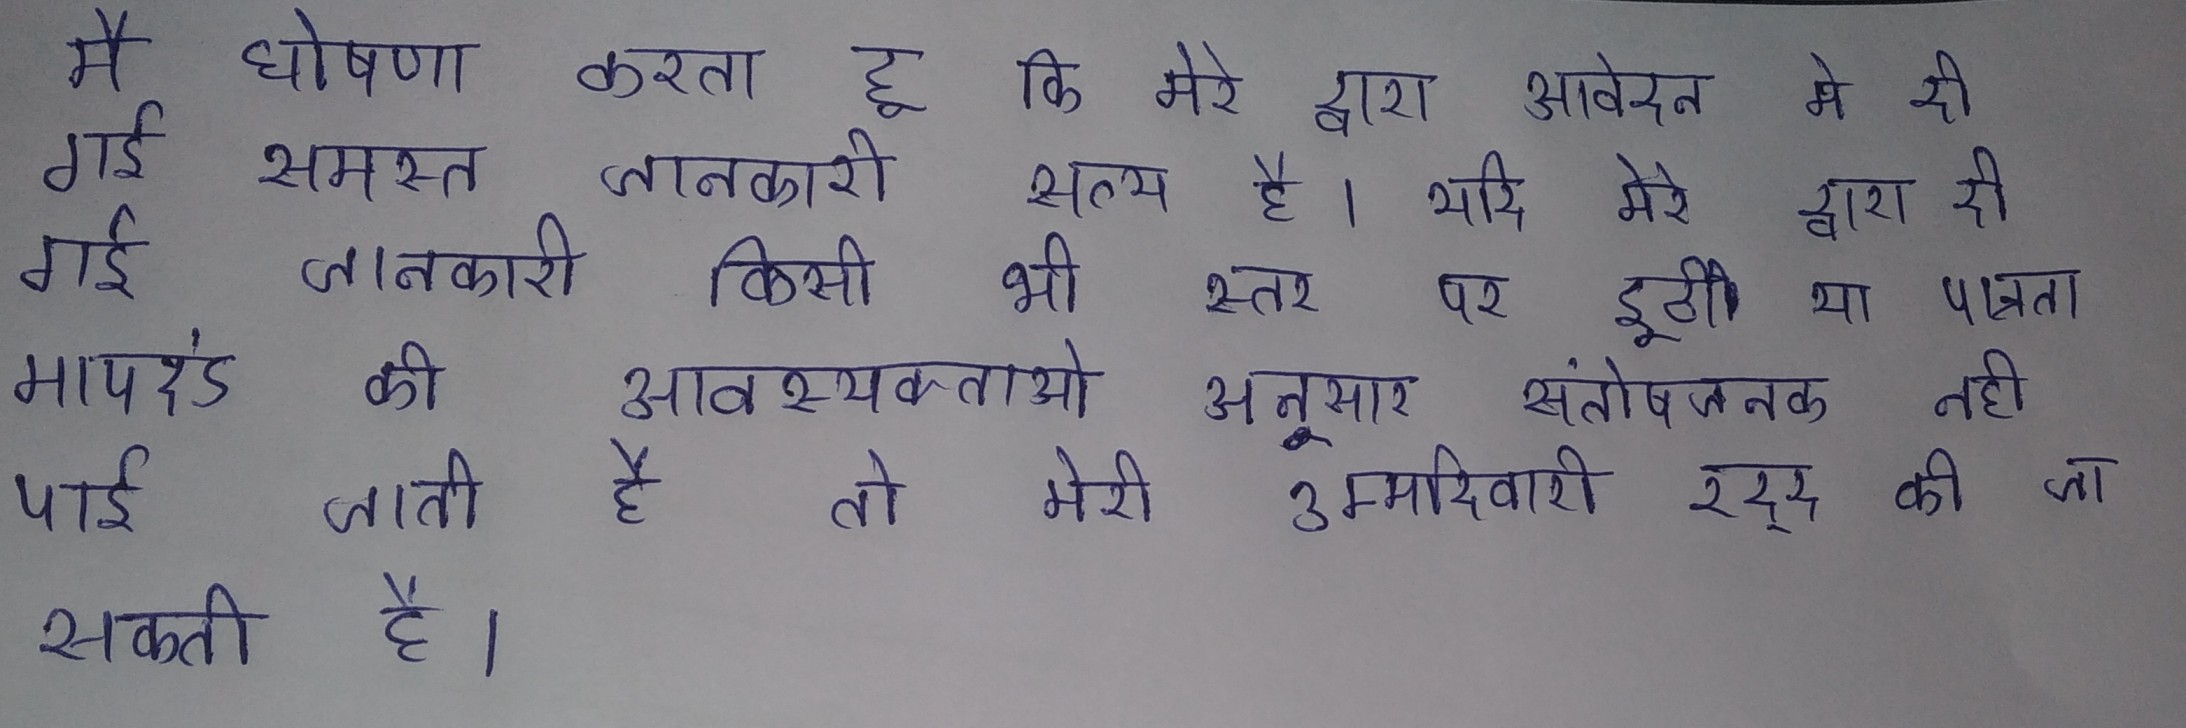 मै घोषणा करता हू कि मेरे द्वारा आवेदन मे दी
गई समस्त जानकारी सत्य है । यदि मेरे द्वारा दी
गई जानकारी किसी भी स्तर पर झूठी या पात्रता
मापदंड की आवश्यकताओ अनूसार संतोषजनक नही
पाई जाती है तो मेरी उम्मदिवारी रद्द की जा
सकती है ।